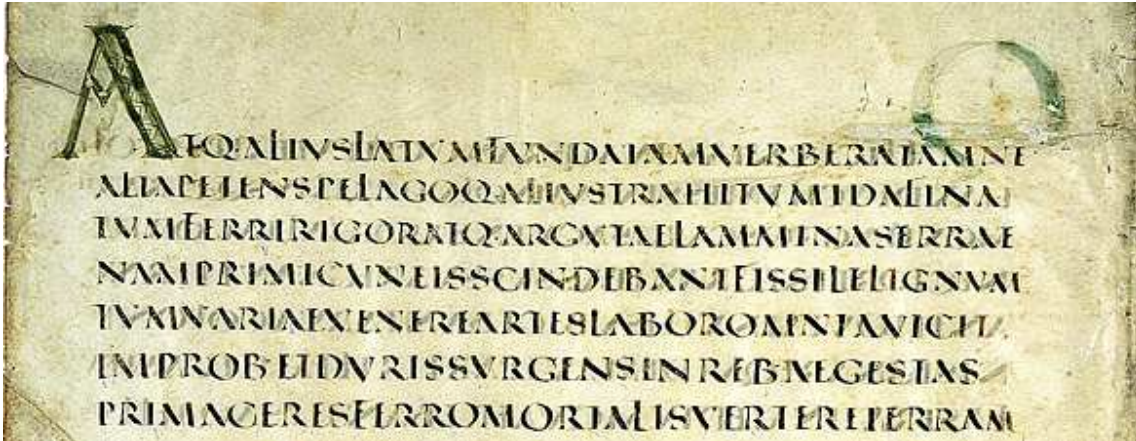 ATQALIVSLATVMFVNDAIAMVERBERATAMNE
ALTAPETENSPELAGOQALIVSTRAHITVMIDALINA
TVMFERRIRIGORATQARGVTAELAMMINASERRAE
NAMPRIMICVNEISSCINDEBANTFISSILELIGNVM
TVMVARIAEVENEREARTESLABOROMNIAVICIT
IMPROBETDVRISSVRGENSINREBAEGESTAS
PRIMACERESFERROMORTALISVERTERETERRAM